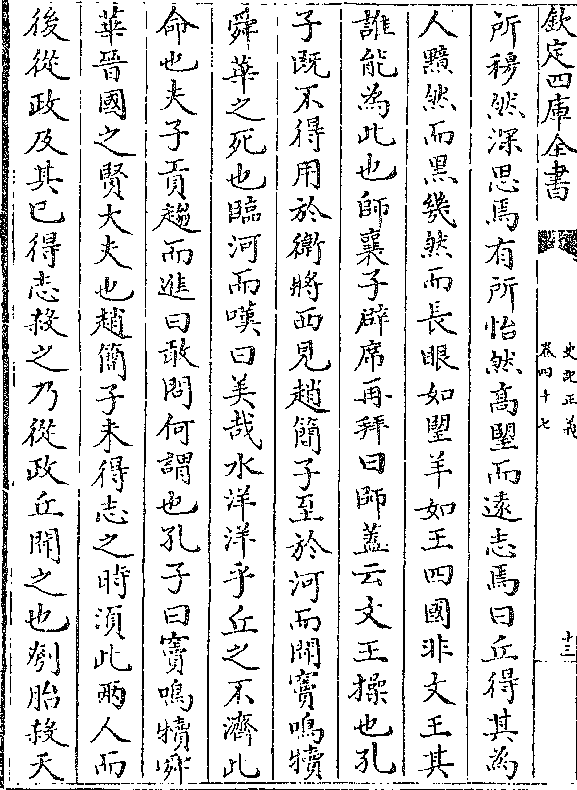 欽定四庫全書
史記正義
卷四十七
十三
所穆然深思焉有所怡然高望而遠志焉曰丘得其為
人黯然而黑幾然而長眼如望羊如王四國非文王其
誰能為此也師襄子辟席再拜曰師蓋云文王操也孔
子既不得用於衛將西見趙簡子至於河而聞竇鳴犢
舜華之死也臨河而嘆曰美哉水洋洋乎丘之不濟此
命也夫子貢趨而進曰敢問何謂也孔子曰竇鳴犢舜
華晉國之賢大夫也趙簡子未得志之時須此兩人而
後從政及其已得志殺之乃從政丘聞之也刳胎殺夭